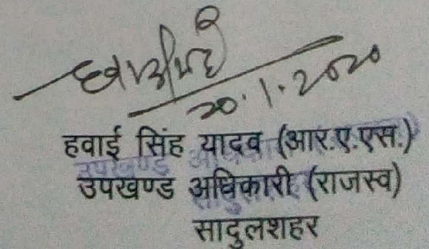 20.1.2020
हवाई सिंह यादव (आर.ए.एस.)
उपखण्ड अधिकारी (राजस्व)
सादुलशहर